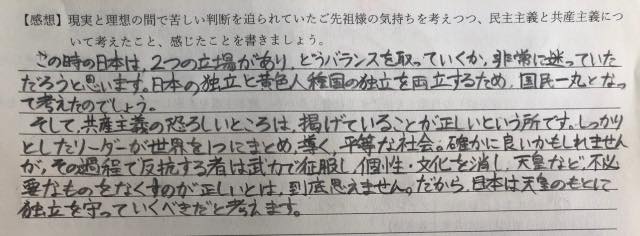 【感想】現実と理想の間で苦しい判断を迫られていたご先祖様の気持ちを考えつつ、民主主義と共産主義につ
いて考えたこと、感じたことを書きましょう。
この時の日本は、2つの立場があり、どうバランスを取っていくか、非常に迷っていた
だろうと思います。日本の独立と黄色人種国の独立を両立するため、国民一丸となっ
て考えたのでしょう。
そして、共産主義の恐ろしいところは、掲げていることが正しいという所です。しっかり
としたリーダーが世界を1つにまとめ、導く、平等な社会。確かに良いかもしれません
が、その過程で反抗する者は武力で征服し、個性・文化を消し、天皇など、不必
要なものをなくすのが正しいとは、到底思えません。だから、日本は天皇のもとにて
独立を守っていくべきだと考えます。